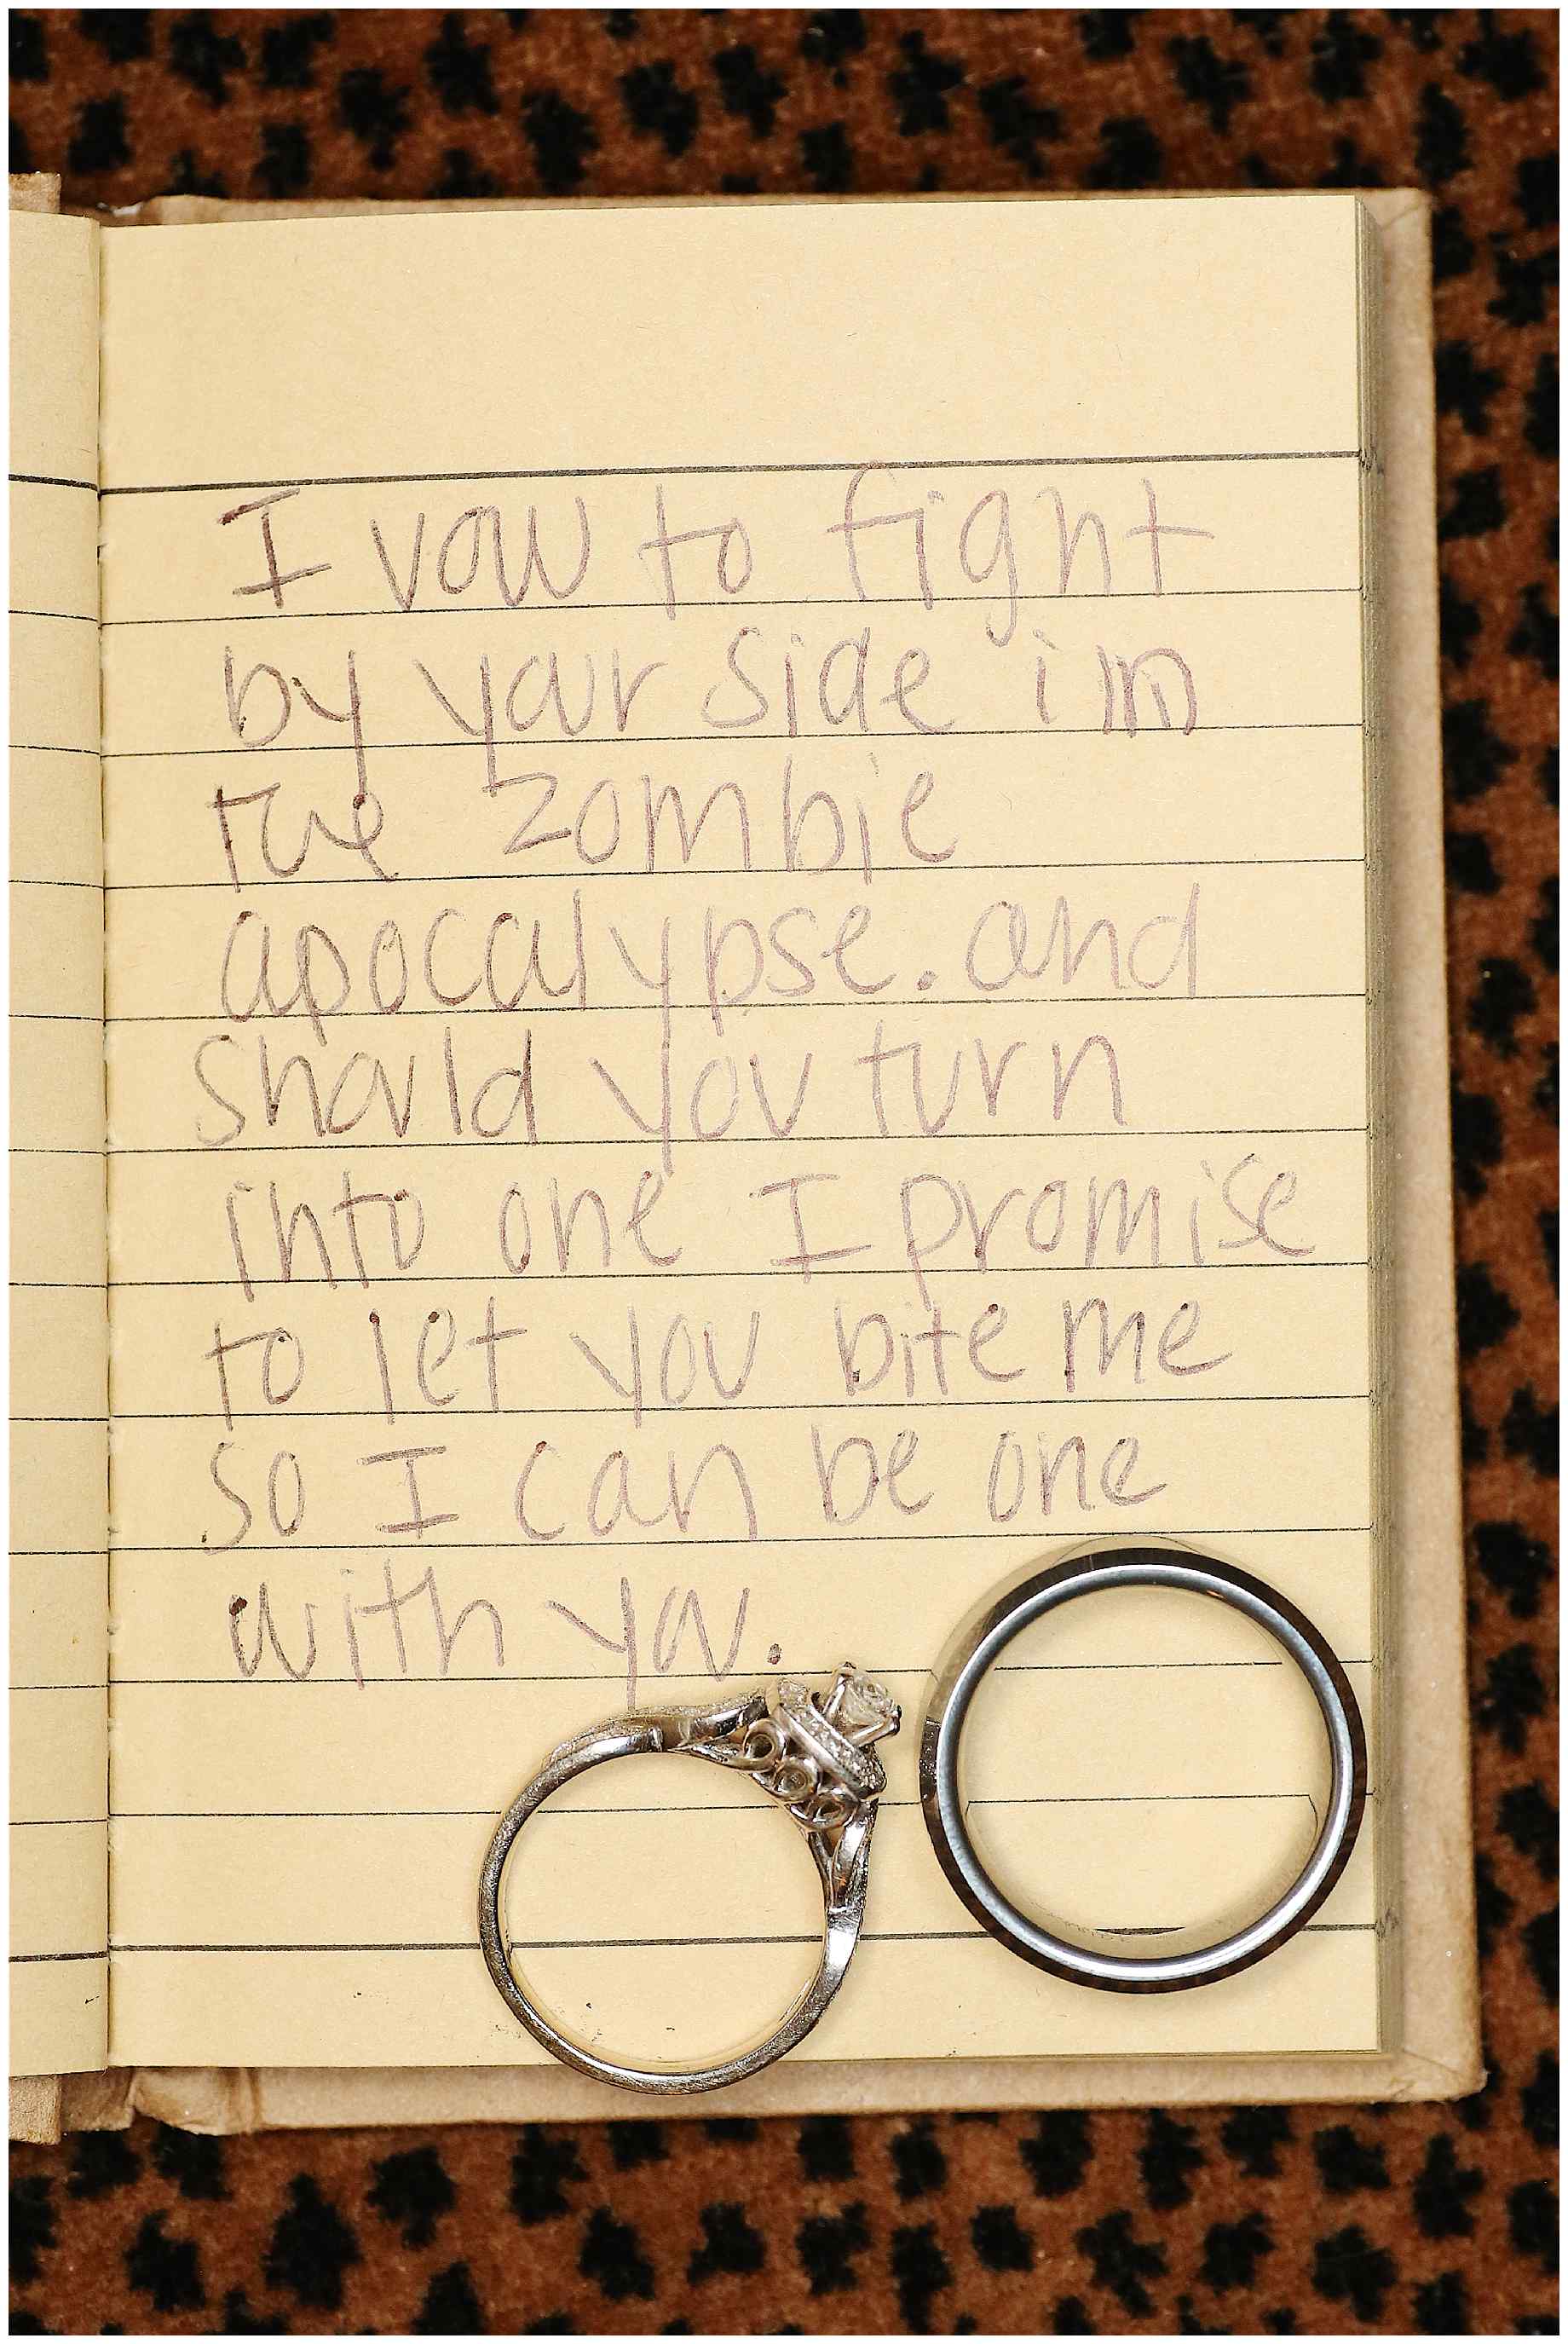 I vow to fight
by your side in
the zombie
apocalypse. and
should you turn
into one I promise
to let you bite me
so I can be one
with you.